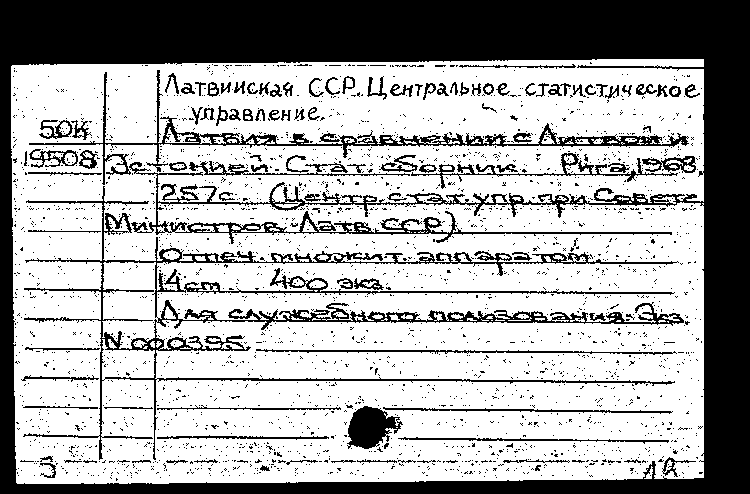 Латвийская ССР. Центральное статистическое
управление.
50К Латвия в сравнении с Литвой и
19508 Эстонией. Стат. сборник. Рига, 1968.
257с. (Центр. стат. упр. при Совете
Министров Латв. ССР)
Отпеч. множит. аппаратом.
14см 400 экз.
Для служебного пользования. Экз.
N 000395.